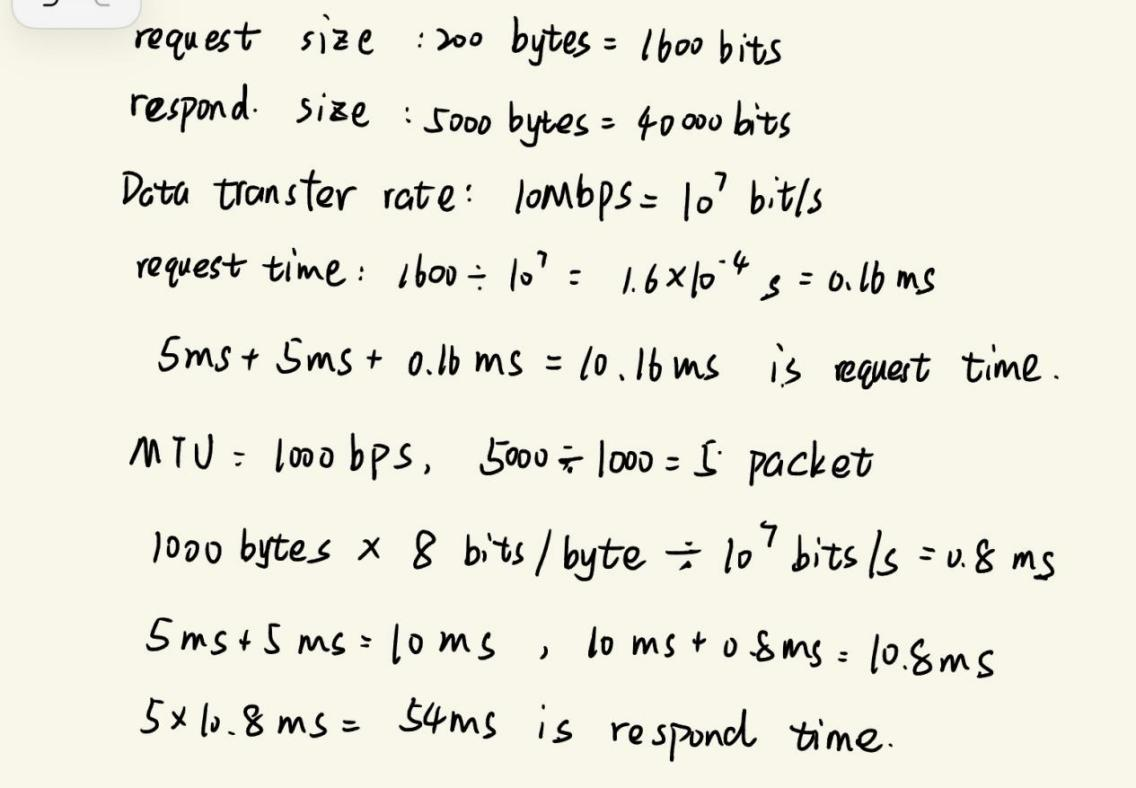 request size : 200 bytes = 1600 bits
respond. size : 5000 bytes = 40000 bits
Data transter rate: 10Mbps = 10⁷ bit/s
request time: 1600 ÷ 10⁷ = 1.6×10⁻⁴ s = 0.16 ms
5ms + 5ms + 0.16 ms = 10.16 ms is request time.
MTU = 1000 bps, 5000 ÷ 1000 = 5 packet
1000 bytes × 8 bits / byte ÷ 10⁷ bits /s = 0.8 ms
5ms + 5 ms = 10 ms , 10 ms + 0.8ms = 10.8ms
5 × 10.8 ms = 54ms is respond time.